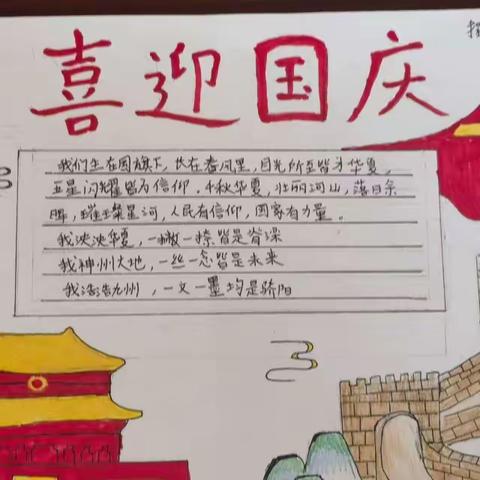 喜迎国庆
我们生在国旗下，长在春风里，目光所至皆为华夏，
五星闪耀皆为信仰，千秋华夏，壮丽河山，落日余
晖，璀璨星河，人民有信仰，国家有力量。
我泱泱华夏，一撇一捺皆是脊梁
我神州大地，一丝一念皆是未来
我浩浩九州，一文一墨均是骄阳